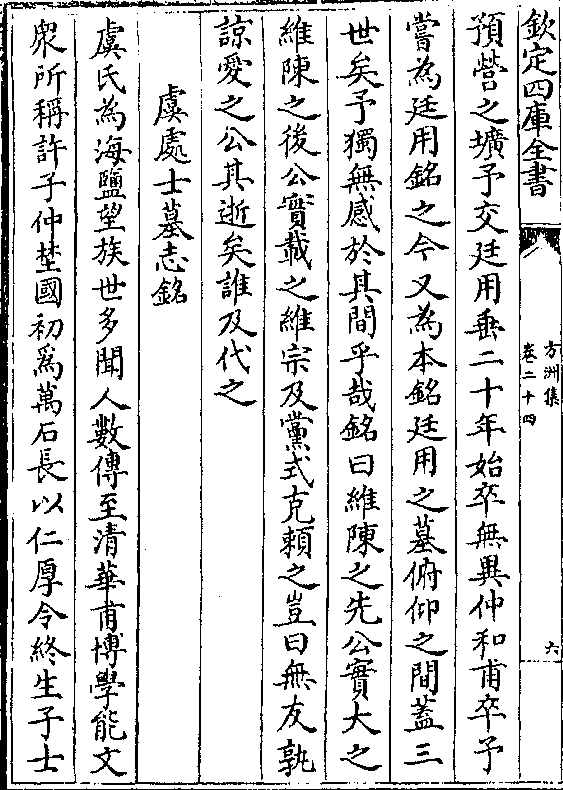 欽定四庫全書
方洲集
卷二十四
六
預營之壙予交廷用垂二十年始卒無異仲和甫卒予
嘗為廷用銘之今又為本銘廷用之墓俯仰之間蓋三
世矣予獨無感於其間乎哉銘曰維陳之先公實大之
維陳之後公實載之維宗及黨式克賴之豈曰無友孰
諒愛之公其逝矣誰及代之
虞處士墓志銘
虞氏為海鹽望族世多聞人數傳至清華甫博學能文
衆所稱許子仲埜國初爲萬石長以仁厚令終生子士